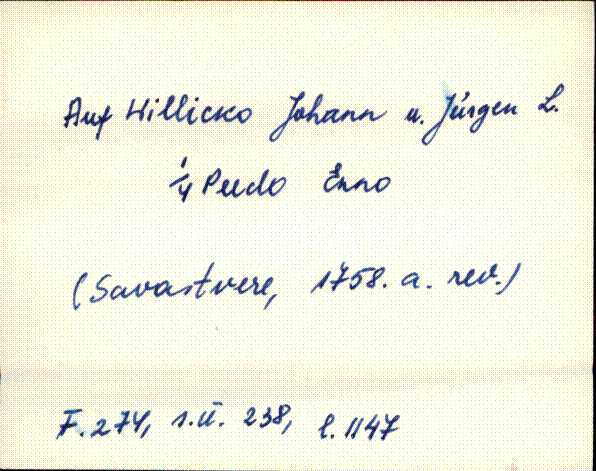 Auf Hillicko Johann u. Jürgen L.
1/4 Peedo Enno
(Savastvere, 1758. a. rev.)
F. 274, s.ü. 238, l. 1147